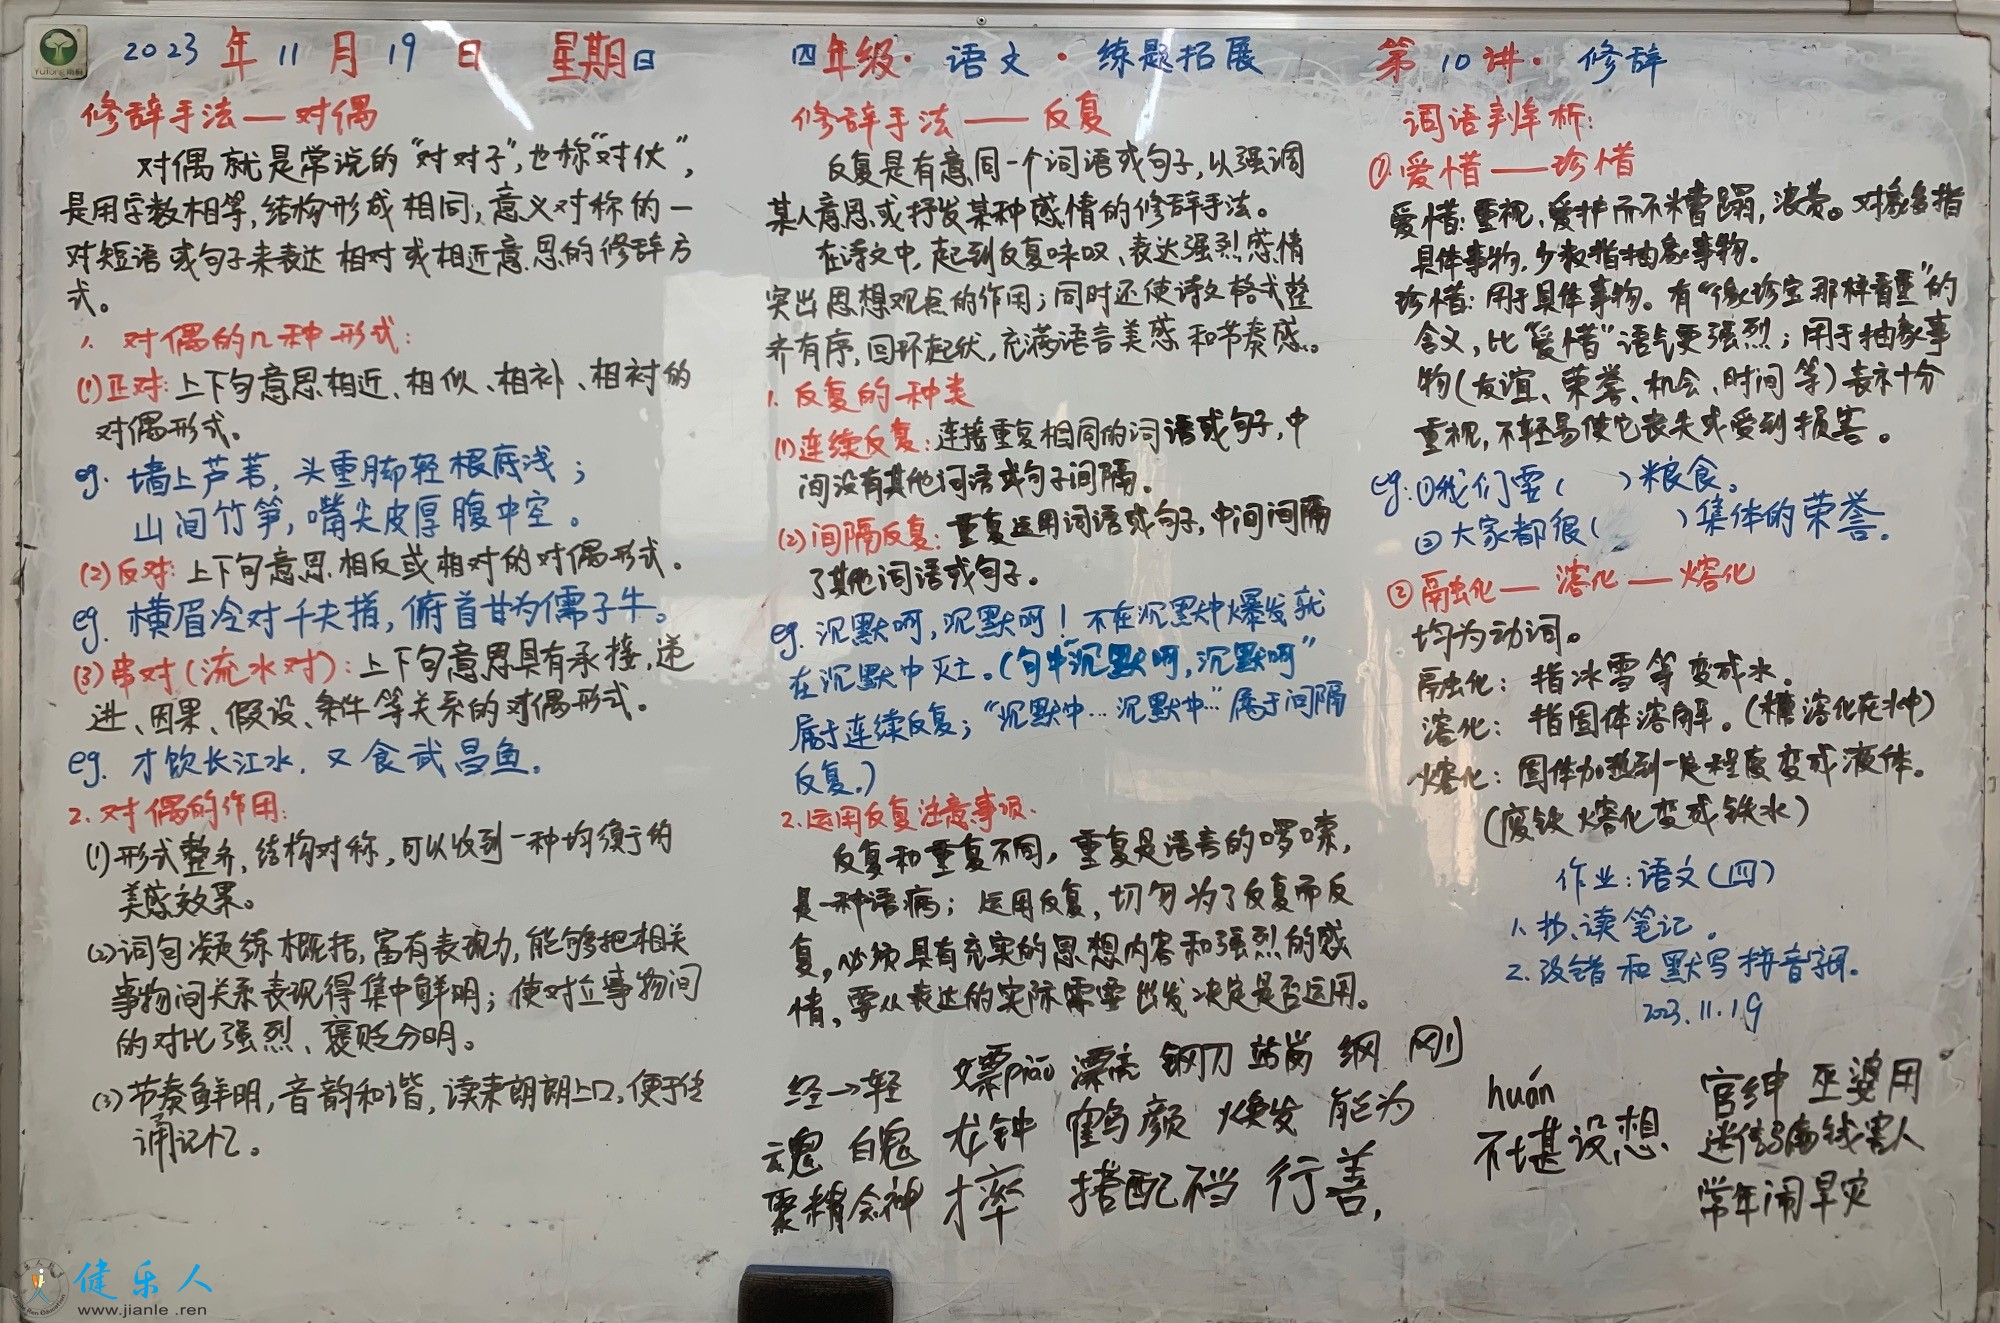 2023年11月19日 星期日
四年级·语文·练题拓展
第10讲·修辞
修辞手法——对偶
对偶就是常说的“对对子”,也称“对仗”,
是用字数相等,结构形成相同,意义对称的一
对短语或句子来表达相对或相近意思的修辞方
式。
1. 对偶的几种形式:
(1)正对:上下句意思相近、相似、相补、相衬的
对偶形式。
eg. 墙上芦苇,头重脚轻根底浅;
山间竹笋,嘴尖皮厚腹中空。
(2)反对:上下句意思相反或相对的对偶形式。
eg. 横眉冷对千夫指,俯首甘为儒子牛。
(3)串对(流水对):上下句意思具有承接、递
进、因果、假设、条件等关系的对偶形式。
eg. 才饮长江水,又食武昌鱼。
2.对偶的作用:
(1)形式整齐,结构对称,可以收到一种均衡的
美感效果。
(2)词句凝练概括,富有表现力,能够把相关
事物间关系表现得集中鲜明;使对立事物间
的对比强烈、褒贬分明。
(3)节奏鲜明,音韵和谐,读来朗朗上口,便于传
诵记忆。
修辞手法——反复
反复是有意同一个词语或句子,以强调
某人意思或抒发某种感情的修辞手法。
在诗文中,起到反复咏叹、表达强烈感情
突出思想观点的作用;同时还使诗文格式整
齐有序,回环起伏,充满语言美感和节奏感。
1. 反复的种类
(1)连续反复:连接重复相同的词语或句子,中
间没有其他词语或句子间隔。
(2)间隔反复:重复运用词语或句子,中间间隔
了其他词语或句子。
eg. 沉默呵,沉默呵!不在沉默中爆发就
在沉默中灭亡。(句中“沉默呵,沉默呵”
属于连续反复;“沉默中…沉默中…”属于间隔
反复。)
2.运用反复注意事项.
反复和重复不同,重复是语言的啰嗦,
是一种语病;运用反复,切勿为了反复而反
复,必须具有充实的思想内容和强烈的感
情,要从表达的实际需要出发决定是否运用。
经→轻 嫖piáo 漂亮 钢刀 站岗 纲 刚
魂 白鬼 龙钟 鹤颜 焕发 能为
聚精会神 搭配不当 行善,
词语辨析:
①爱惜——珍惜
爱惜:重视,爱护而不糟蹋,浪费。对象多指
具体事物,少数指抽象事物。
珍惜:用于具体事物。有“像珍宝那样看重”的
含义,比“爱惜”语气更强烈;用于抽象事
物(友谊、荣誉、机会、时间等)表示十分
重视,不轻易使它丧失或受到损害。
eg:①我们要( )粮食。
②大家都很( )集体的荣誉。
②融化—溶化—熔化
均为动词。
融化:指冰雪等变成水。
溶化:指固体溶解。(糖溶化在水中)
熔化:固体加热到一定程度变成液体。
(废铁熔化变成铁水)
作业:语文(四)
1.抄、读笔记。
2.没错和默写拼音词。
2023.11.19
huán
不堪设想
官绅 巫婆用
迷信骗钱害人
常年闹旱灾
健乐人
www.jianle.ren